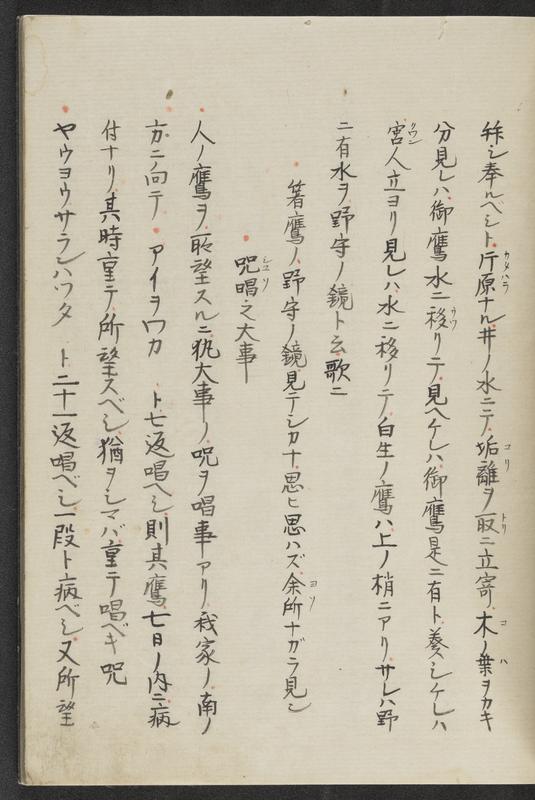 奉ルベシト片原ナル井ノ水ニテ垢離ヲ取ニ立寄木ノ葉ヲカキ
分見レハ御鷹水ニ移リテ見ヘケレハ御鷹是ニ有ト奏シケレハ
宮人立ヨリ見レハ水ニ移リテ白生ノ鷹ハ上ノ梢ニアリサレハ野
ニ有水ヲ野守ノ鏡ト云歌ニ
箸鷹ノ野守ノ鏡見テシカナ思ヒ思ハズ余所ナガラ見シ
呪唱之大事
人ノ鷹ヲ所望スルニ大事ノ呪ヲ唱事アリ我家ノ南ノ
方ニ向テ アイヲワカ ト七返唱ヘシ則其鷹七日ノ内ニ病
付ナリ其時重テ所望スベシ猶ヲシマバ重テ唱ベキ呪
ヤウヨウサランハツタ ト二十一返唱ベシ一段ト病ベシ又所望